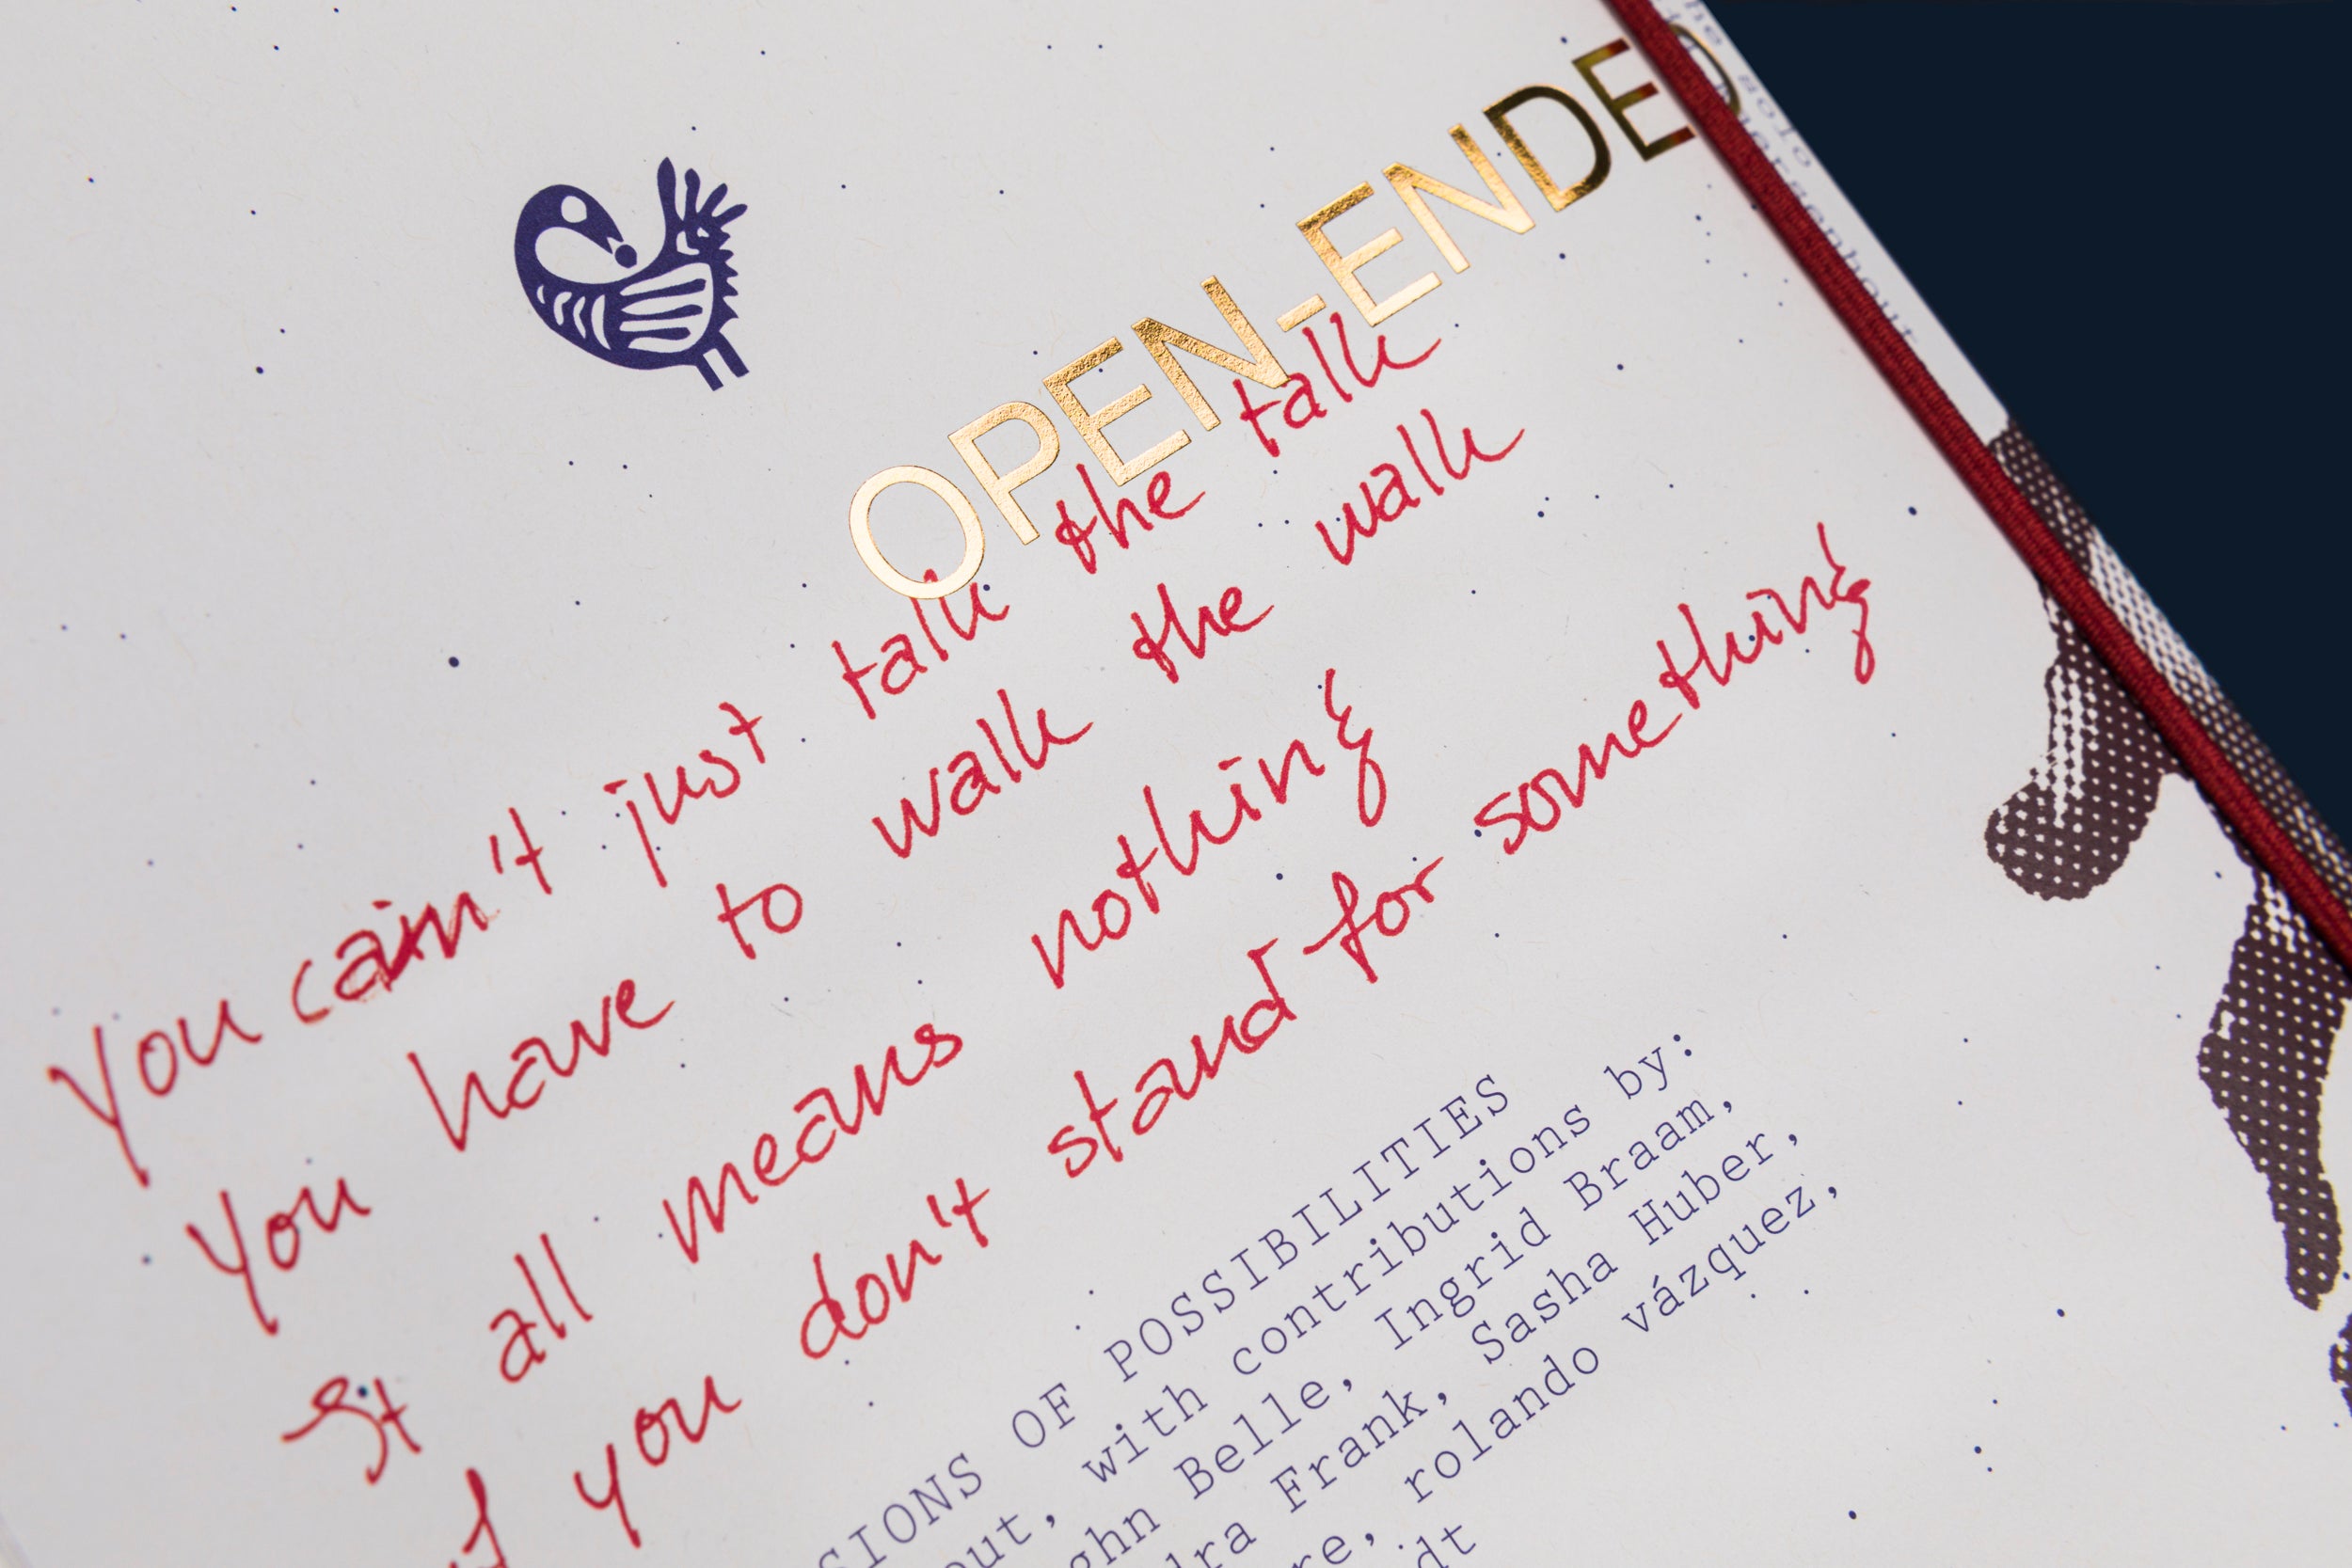 OPEN-ENDED
You cain't just talk the talk
You have to walk the walk
It all means nothing
if you don't stand for something
SIONS OF POSSIBILITIES
out, with contributions by:
ghn Belle, Ingrid Braam,
dra Frank, Sasha Huber,
re, rolando vázquez,
dt